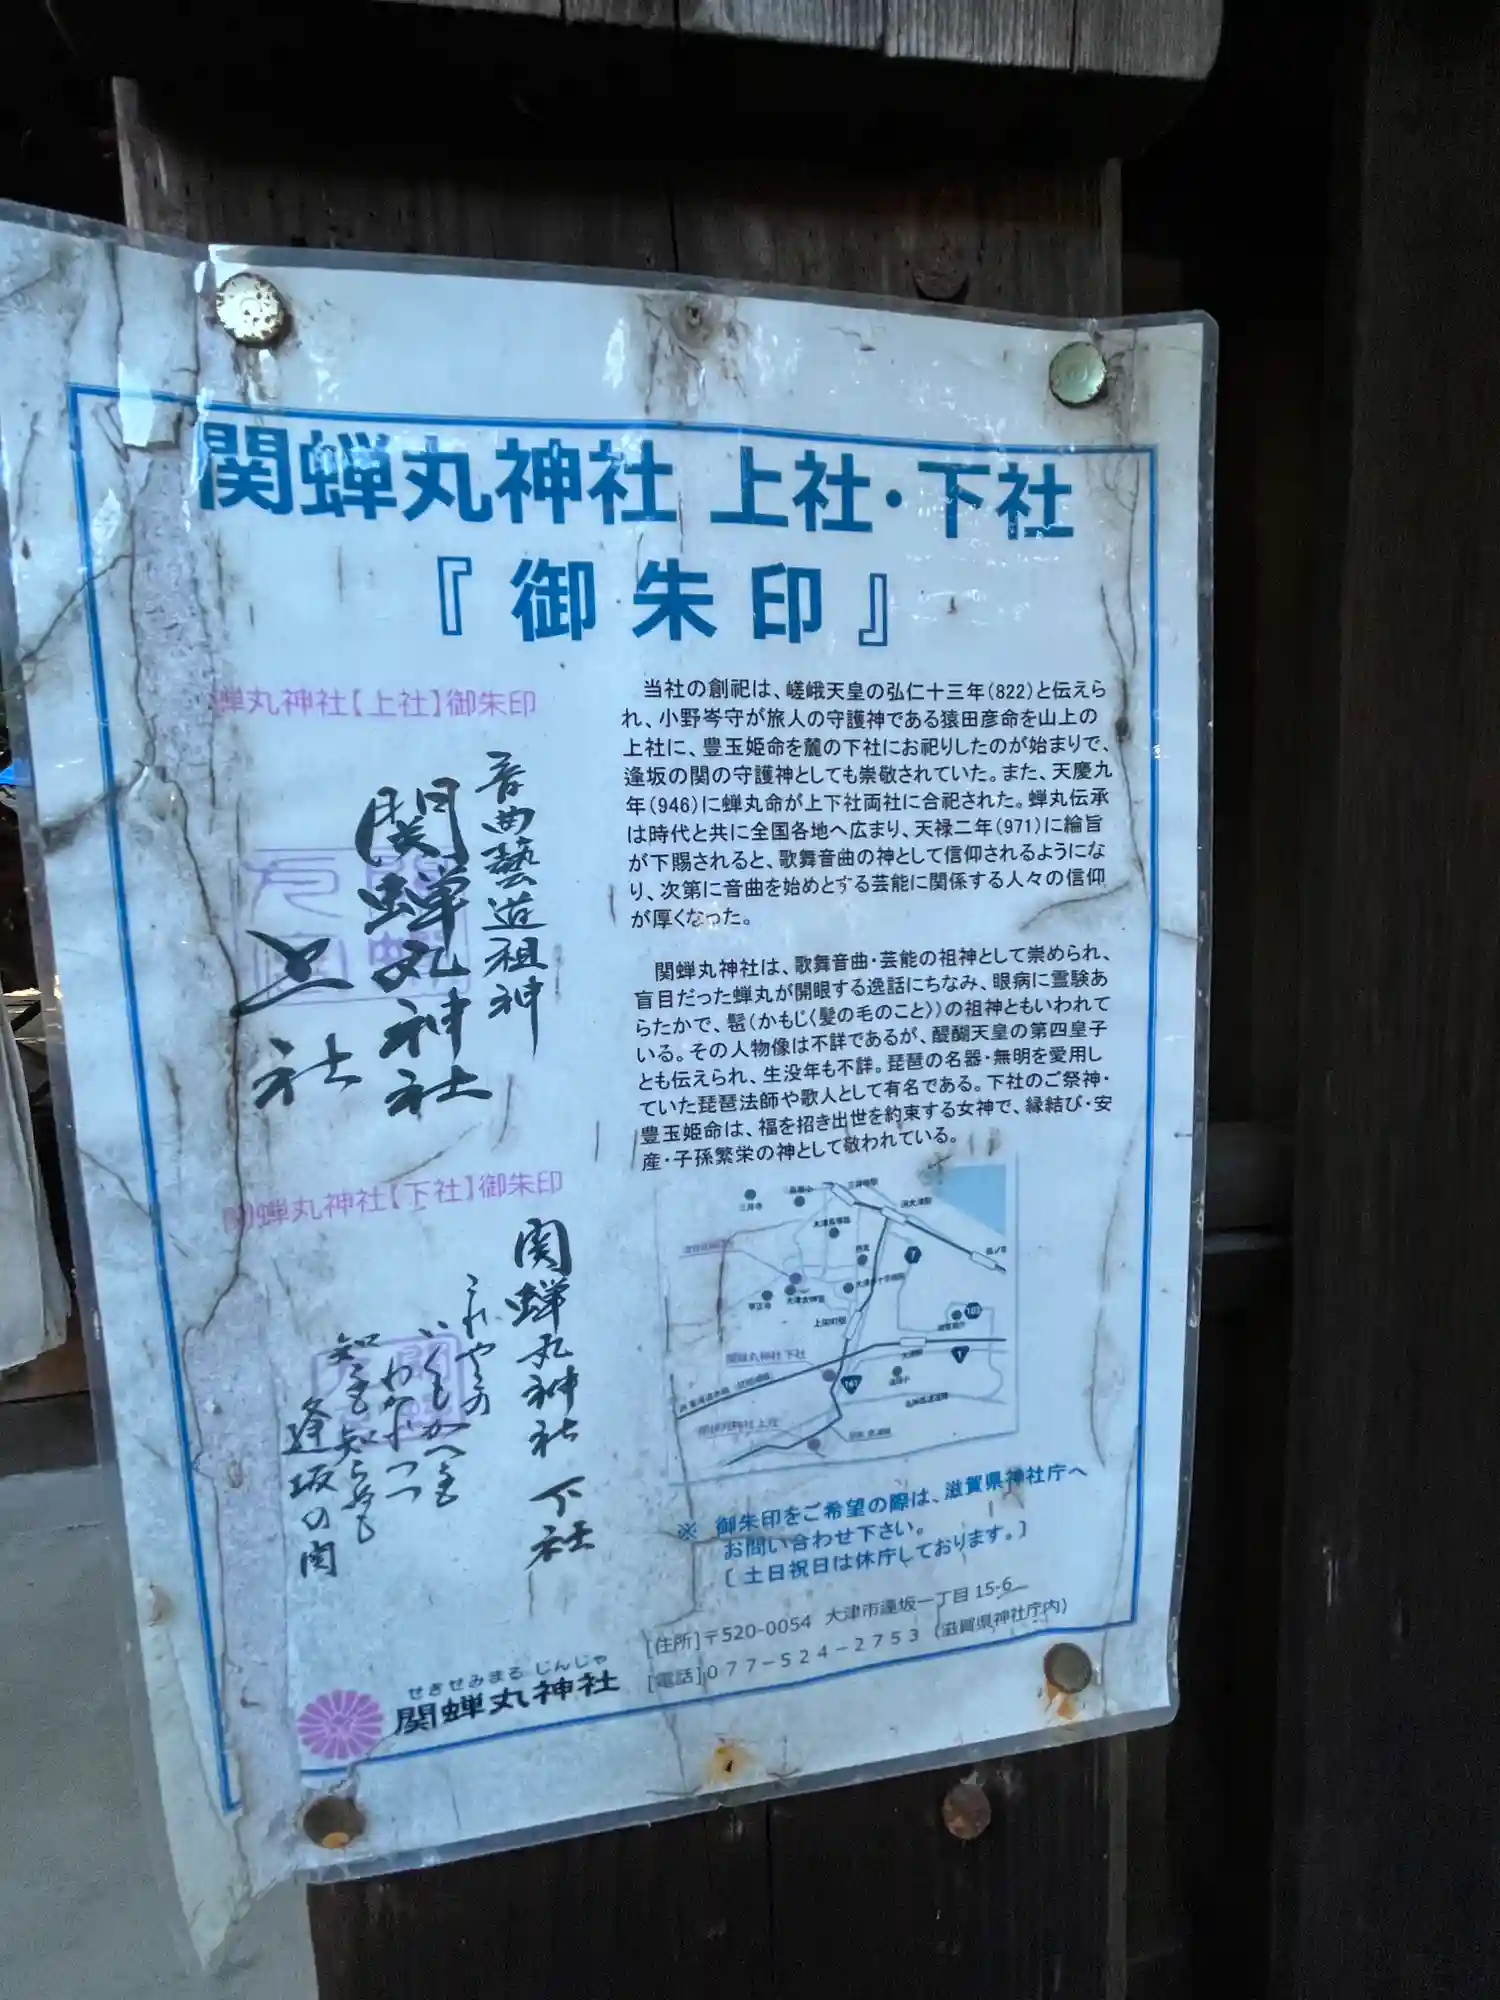 関蝉丸神社 上社・下社
『御朱印』
蝉丸神社【上社】御朱印
音曲藝道祖神
関蝉丸神社
上社
関蝉丸神社【下社】御朱印
関蝉丸神社 下社
これやこの
いくもかへるも
わかれつつ
知るも知らぬも
逢坂の関
当社の創祀は、嵯峨天皇の弘仁十三年(822)と伝えら
れ、小野岑守が旅人の守護神である猿田彦命を山上の
上社に、豊玉姫命を麓の下社にお祀りしたのが始まりで、
逢坂の関の守護神としても崇敬されていた。また、天慶九
年(946)に蝉丸命が上下社両社に合祀された。蝉丸伝承
は時代と共に全国各地へ広まり、天禄二年(971)に綸旨
が下賜されると、歌舞音曲の神として信仰されるようにな
り、次第に音曲を始めとする芸能に関係する人々の信仰
が厚くなった。
関蝉丸神社は、歌舞音曲・芸能の祖神として崇められ、
盲目だった蝉丸が開眼する逸話にちなみ、眼病に霊験あ
らたかで、髢(かもじ〈髪の毛のこと〉)の祖神ともいわれて
いる。その人物像は不詳であるが、醍醐天皇の第四皇子
とも伝えられ、生没年も不詳。琵琶の名器・無明を愛用し
ていた琵琶法師や歌人として有名である。下社のご祭神・
豊玉姫命は、福を招き出世を約束する女神で、縁結び・安
産・子孫繁栄の神として敬われている。
三井寺
上栄町駅
関蝉丸神社 下社
関蝉丸神社 上社
7
103
1
161
※ 御朱印をご希望の際は、滋賀県神社庁へ
お問い合わせ下さい。
[ 土日祝日は休庁しております。]
[住所]〒520-0054 大津市逢坂一丁目 15-6
[電話]077-524-2753 (滋賀県神社庁内)
せきせみまる じんじゃ
関蝉丸神社